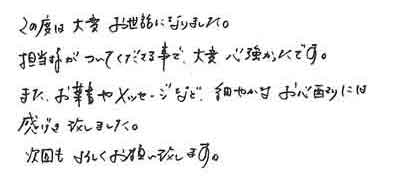 この度は大変お世話になりました。
担当様がついてくださる事で、大変心強かったです。
また、お葉書やメッセージなど、細やかなお心配りには
感げき致しました。
次回もよろしくお願い致します。